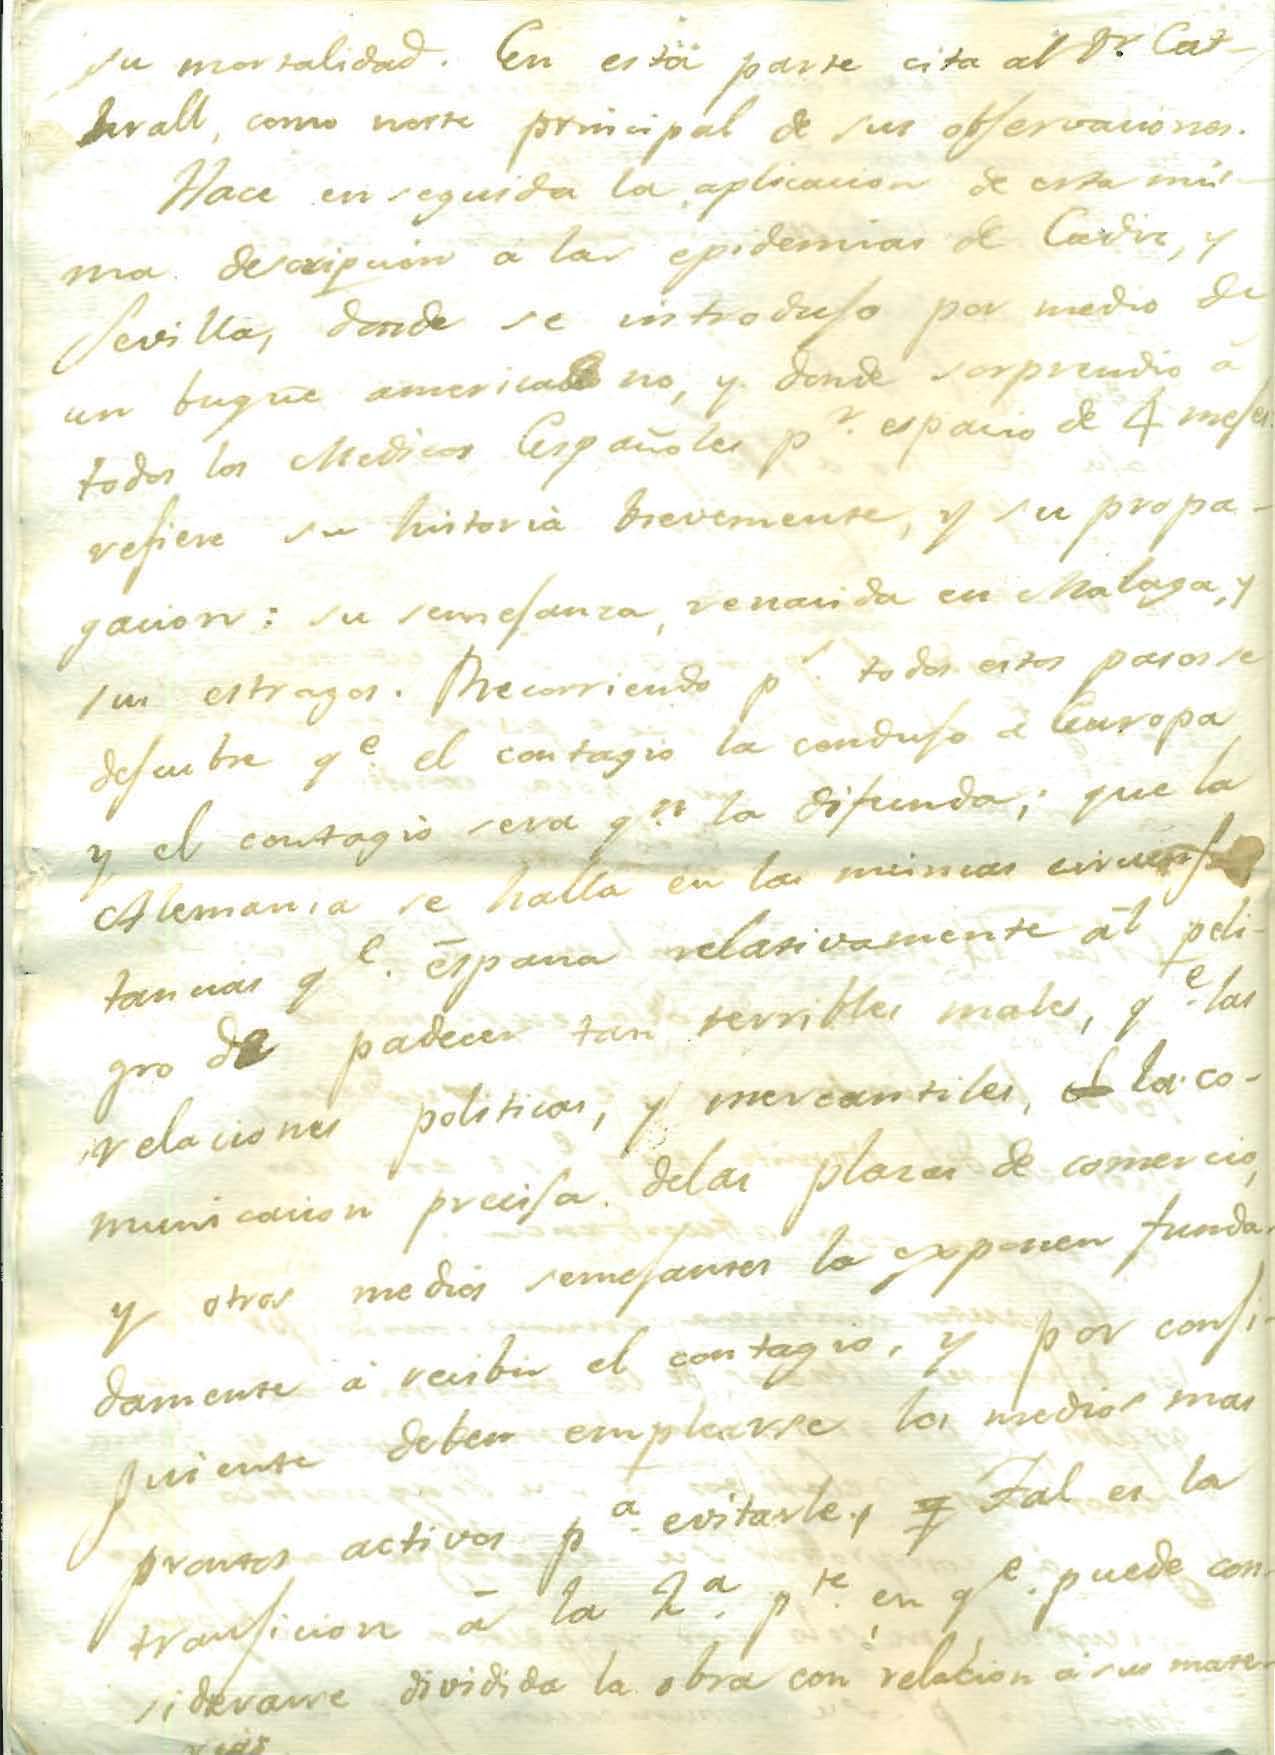 su mortalidad. En esta parte cita al Dr. Cat-
hrall, como norte principal de sus observaciones.
Hace en seguida la aplicacion de esta mis-
ma descripcion a las epidemias de Cadiz, y
Sevilla, donde se introduso por medio de
un buque america no, y donde sorprendio á
todos los Medicos Españoles pr. espacio de 4 meses.
refiere su historia brevemente, y su propa-
gacion: su semejanza, renacida en Malaga, y
sus estragos. Recorriendo pr. todos estos pasos se
descubre qe. el contagio la condujo a Europa,
y el contagio sera qn. la difunda; que la
Alemania se halla en las mismas circuns-
tancias qe. españa relativamente ál peli-
gro de padecer tan terribles males, qe. las
relaciones politicas, y mercantiles, la co-
municacion precisa delas plazas de comercio,
y otros medios semejantes la exponen funda-
damente á recibir el contagio, y por consi-
guiente deben emplearse los medios mas
prontos activos pa. evitarle, Tal es la
transicion á la 2a. pte. en qe. puede con-
siderarse dividida la obra con relacion á sus mate-
rias